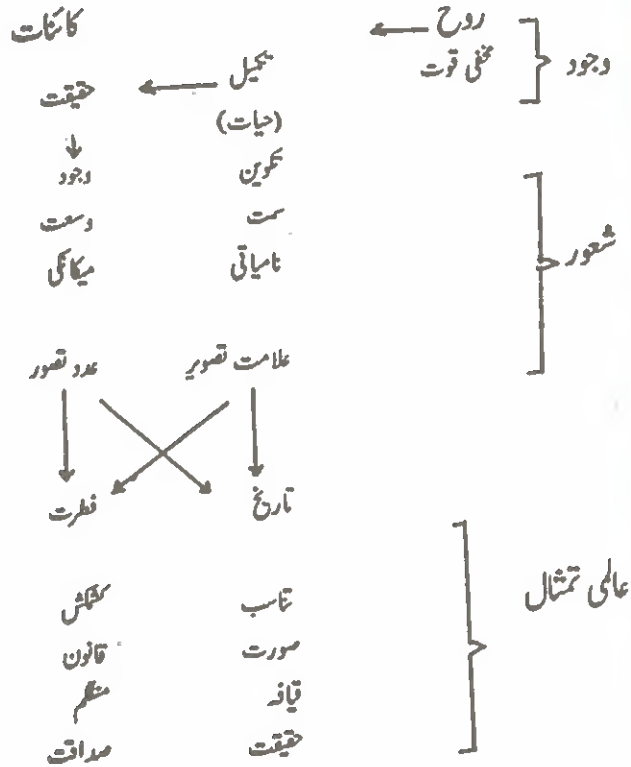 روح کائنات
وجود مخفی قوت
تکمیل حقیقت
(حیات)
تکوین وجود
سمت وسعت
شعور
نامیاتی میکانکی
علامت تصویر عدد تصور
تاریخ فطرت
عالمی تمثال
تناسب کشمکش
صورت قانون
قیافہ منظم
حقیقت صداقت